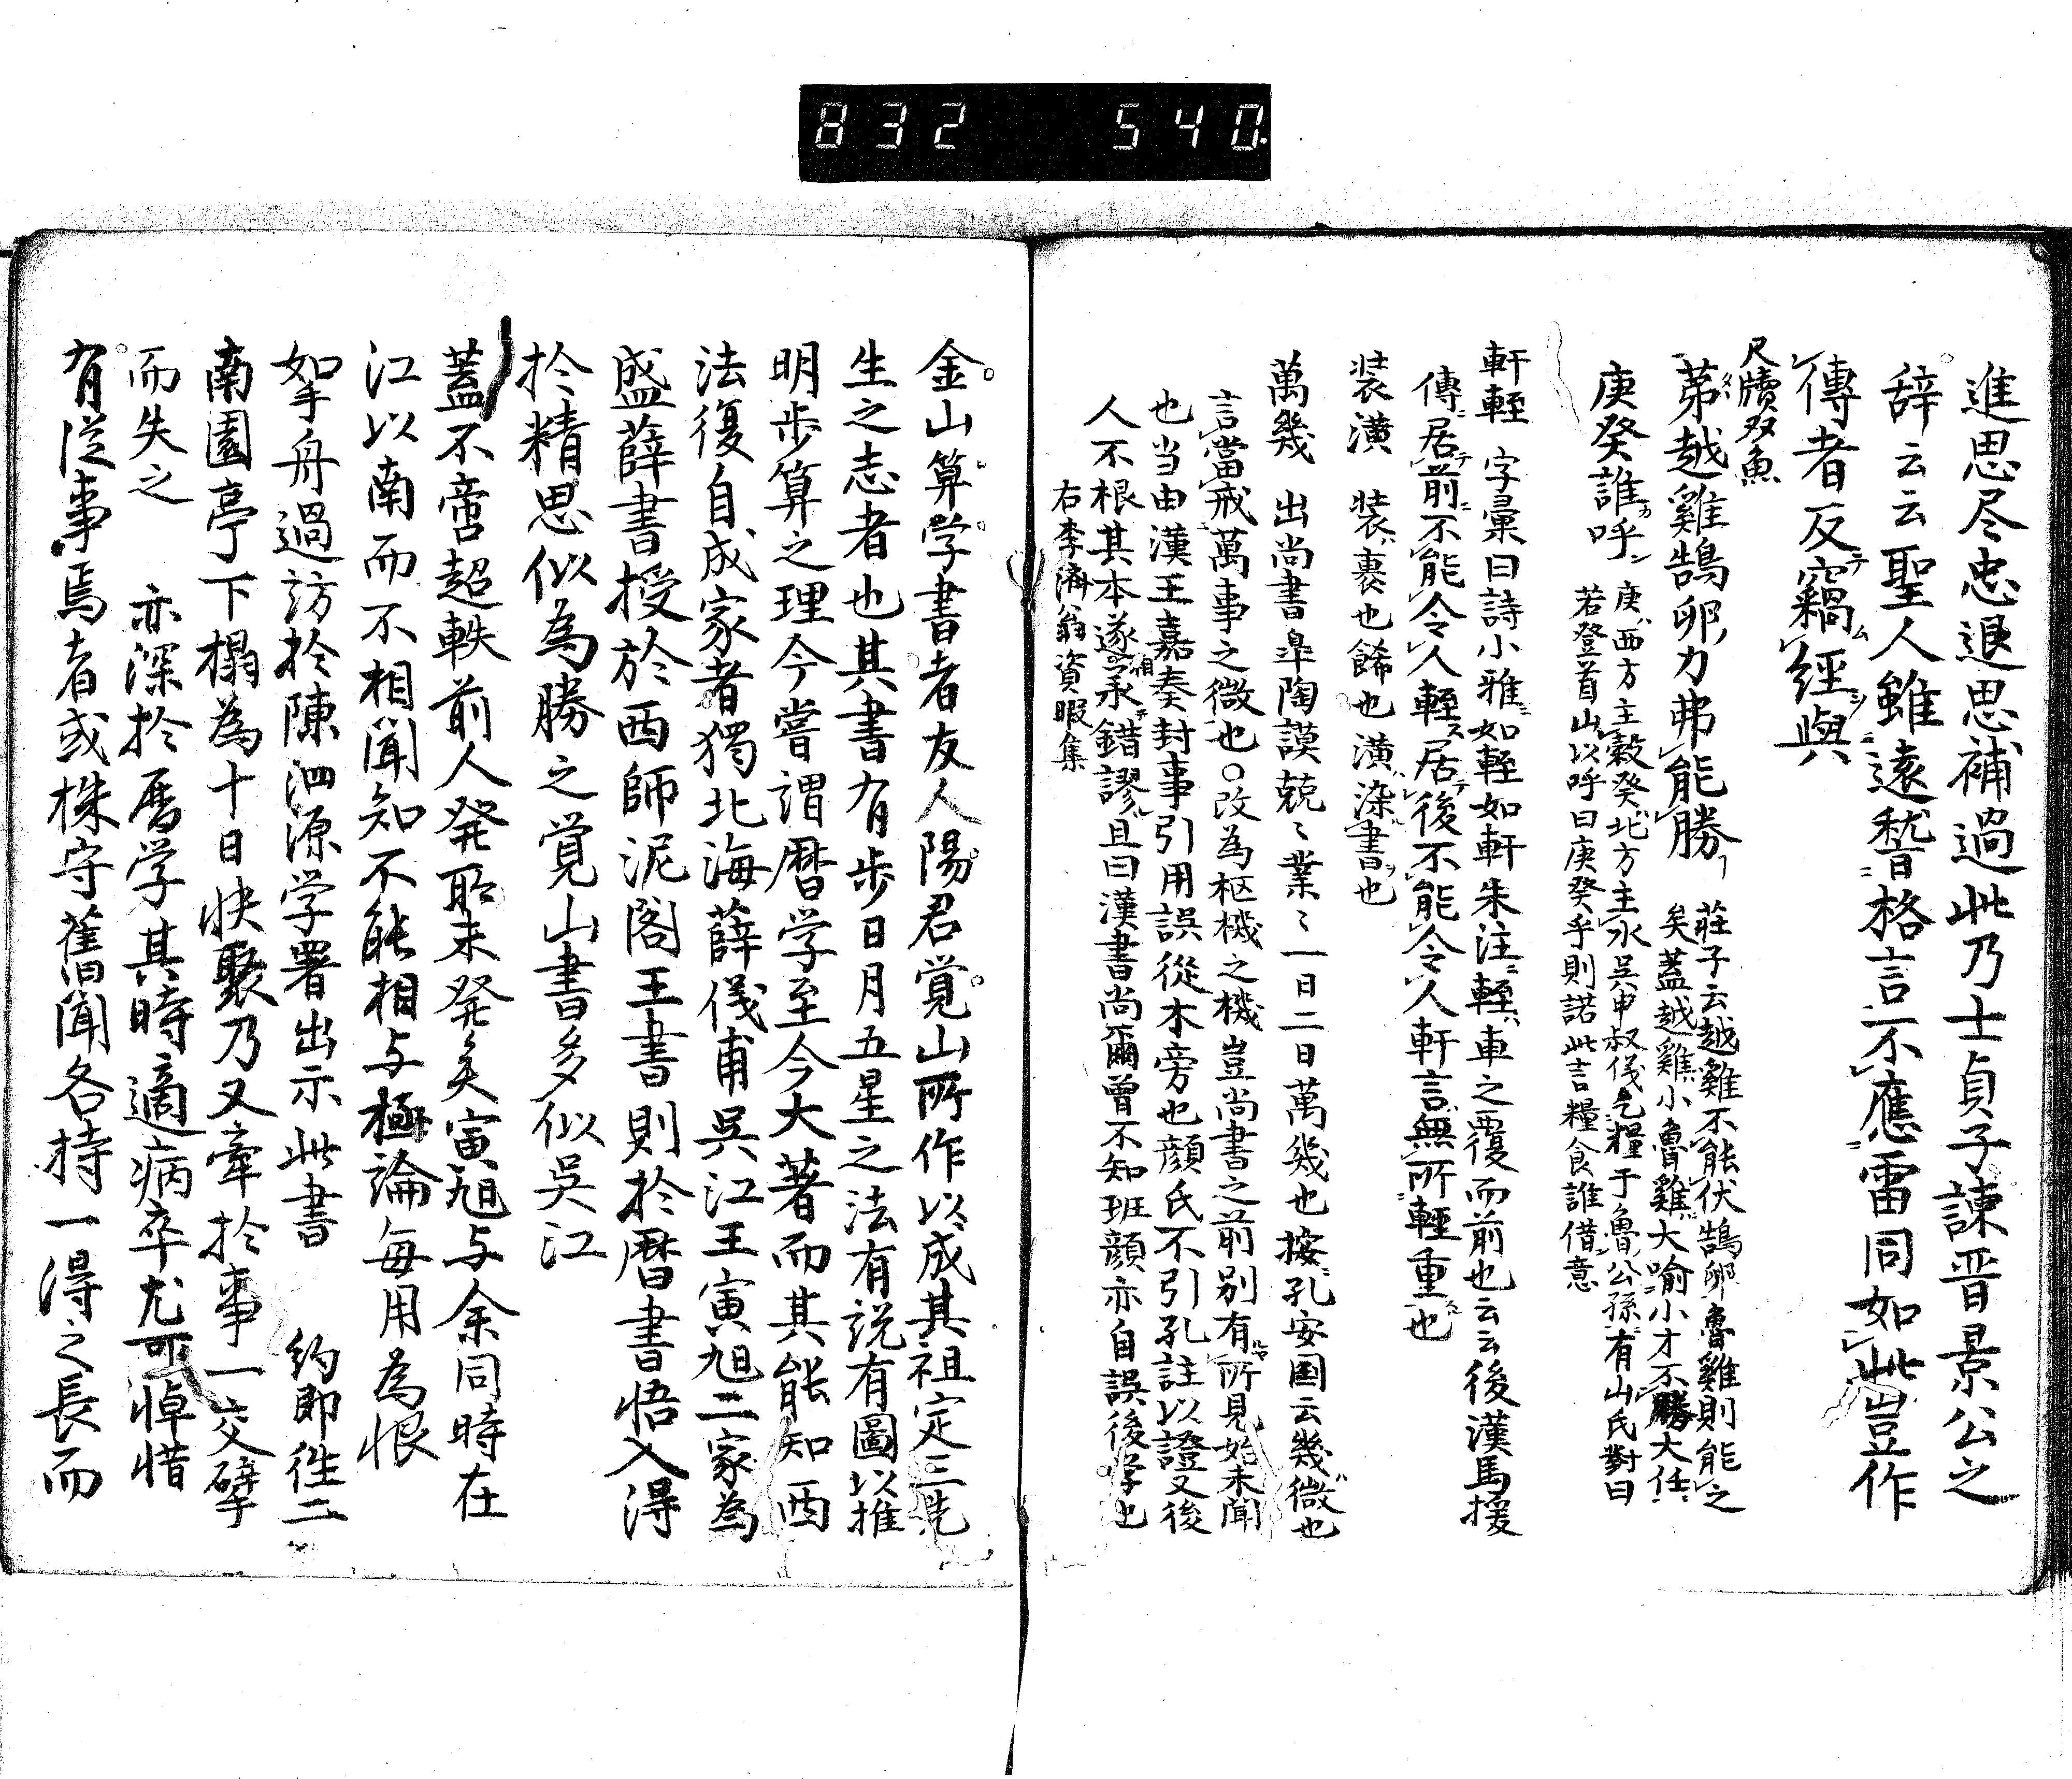 832 540
進思尽忠退思補過此乃士貞子諌晋景公之
辞云云聖人雖遠稽格言不應雷同如此豈作
傳者反竊経與
尺牘双魚
第越雞鵠卵力弗能勝 莊子云越雞不能伏鵠卵魯雞則能之
矣蓋越雞小魯雞大喻小才不勝大任
庚癸誰呼 庚西方主穀癸北方主水呉申叔儀乞糧于魯公孫有山氏對曰
若登首山以呼曰庚癸乎則諾此言糧食誰借意
軒輊 字彙曰詩小雅如輊如軒朱注輊車之覆而前也云云後漢馬援
傳居前不能令人輊居後不能令人軒言無所軽重也
装潢 装裹也餙也潢染書也
萬幾 出尚書皐陶謨兢〻業〻一日二日萬幾也按孔安国云幾微也
言當戒萬事之微也〇改為柩機之機豈尚書之前別有所見始未聞
也当由漢王嘉奏封事引用誤從木旁也顔氏不引孔註以證又後
人不根其本遂相承錯謬且曰漢書尚爾曽不知班顔亦自誤後学也
右李済翁資暇集
金山算学書者友人陽君覚山所作以成其祖定三先
生之志者也其書有歩日月五星之法有説有圖以推
明歩算之理今嘗謂暦学至今大著而其能知西
法復自成家者獨北海薛儀甫呉江王寅旭二家為
盛薛書授於西師泥閣王書則於暦書悟入得
於精思似為勝之覚山書多似呉江
蓋不啻超軼前人発所未発矣寅旭与余同時在
江以南而不相聞知不能相与極論毎用為恨
如拏舟過訪於陳泗源学署出示此書 約即徃二
南園亭下榻為十日快聚乃又牽於事一交臂
而失之 亦深於暦学其時適病卒尤可悼惜
有従事焉者或株守舊聞各持一得之長而